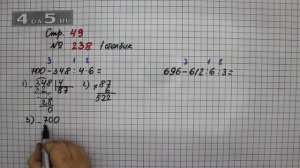 4da5.ru
Стр. 49
№ 238 1 столбик
3 1 2
700-348:4·6=
3 1 2
696-612:6:3=
1) 348 4
32 87
28
0
2) × 87
6
522
3) - 700